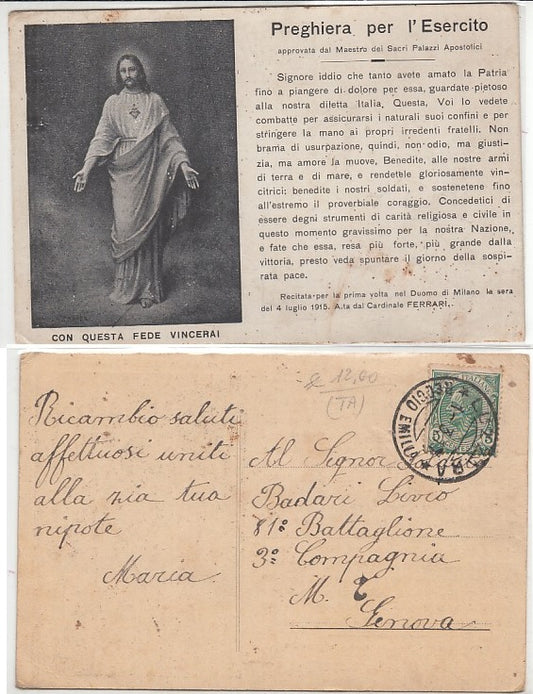 Preghiera per l'Esercito
approvata dal Maestro dei Sacri Palazzi Apostolici
Signore iddio che tanto avete amato la Patria
fino a piangere di dolore per essa, guardate pietoso
alla nostra diletta Italia, Questa, Voi lo vedete
combatte per assicurarsi i naturali suoi confini e per
stringere la mano ai propri irredenti fratelli. Non
brama di usurpazione, quindi, non odio, ma giusti-
zia, ma amore la muove, Benedite, alle nostre armi
di terra e di mare, e rendetele gloriosamente vin-
citrici: benedite i nostri soldati, e sostenetene fino
all'estremo il proverbiale coraggio. Concedetici di
essere degni strumenti di carità religiosa e civile in
questo momento gravissimo per la nostra Nazione,
e fate che essa, resa più forte, più grande dalla
vittoria, presto veda spuntare il giorno della sospi-
rata pace.
Recitata per la prima volta nel Duomo di Milano la sera
del 4 luglio 1915. A.ta dal Cardinale FERRARI.
CON QUESTA FEDE VINCERAI
12,00
(TA)
REGGIO EMILIA
Ricambio saluti
affettuosi uniti
alla zia tua
nipote
Maria
Al Signor
Badari Livio
81º Battaglione
3º Compagnia
M.
Genova